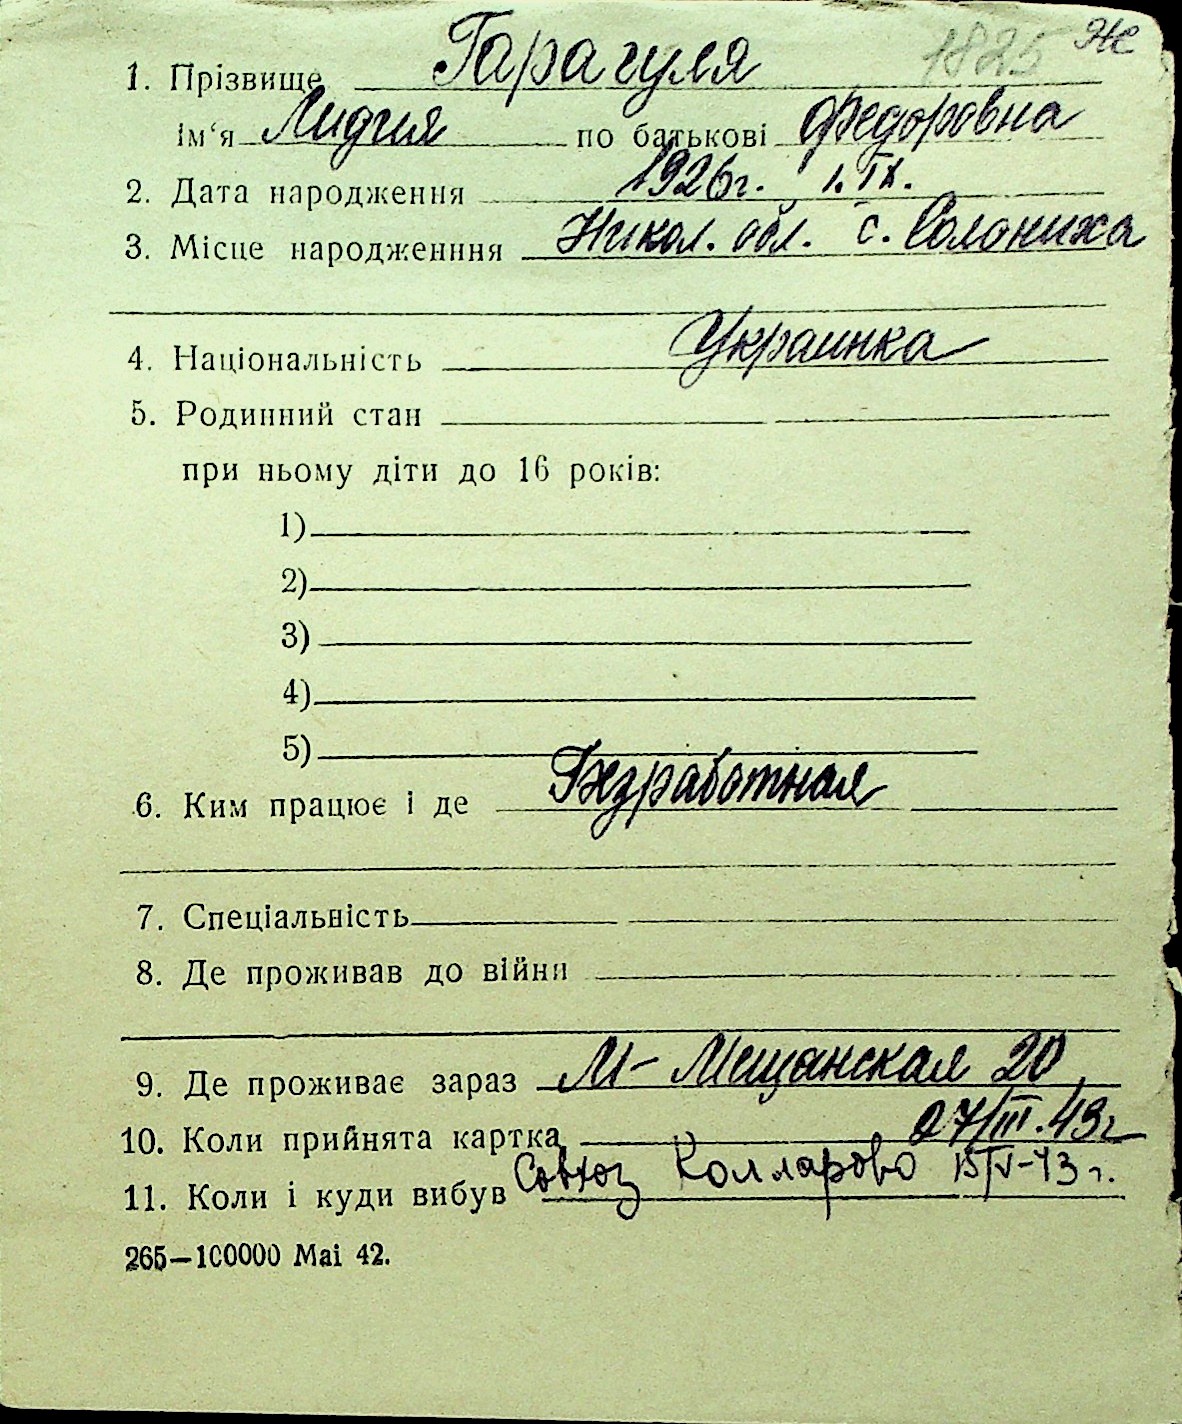 1825 Же
1. Прізвище Гарагуля
ім‘я Лидия по батькові Федоровна
2. Дата народження 1926г. 1.IX.
3. Місце народженння Никол. обл. с. Солониха
4. Національність Украинка
5. Родинний стан
при ньому діти до 16 років:
1)
2)
3)
4)
5)
6. Ким працює і де Безработная
7. Спеціальність
8. Де проживав до війни
9. Де проживає зараз М-Мещанская 20
10. Коли прийнята картка 27/III.43г
11. Коли і куди вибув Совхоз Колларово 15/V-43г.
265—100000 Mai 42.